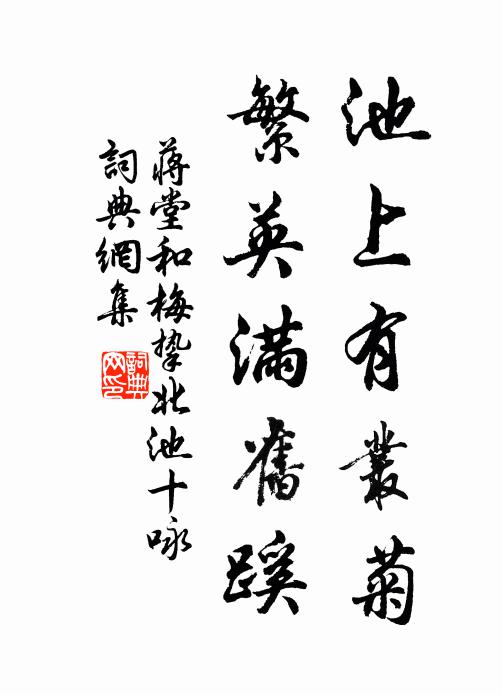 池上有叢菊
繁英滿舊蹊
蔣堂和梅摯北池十咏
詞典網集
詞典
网印